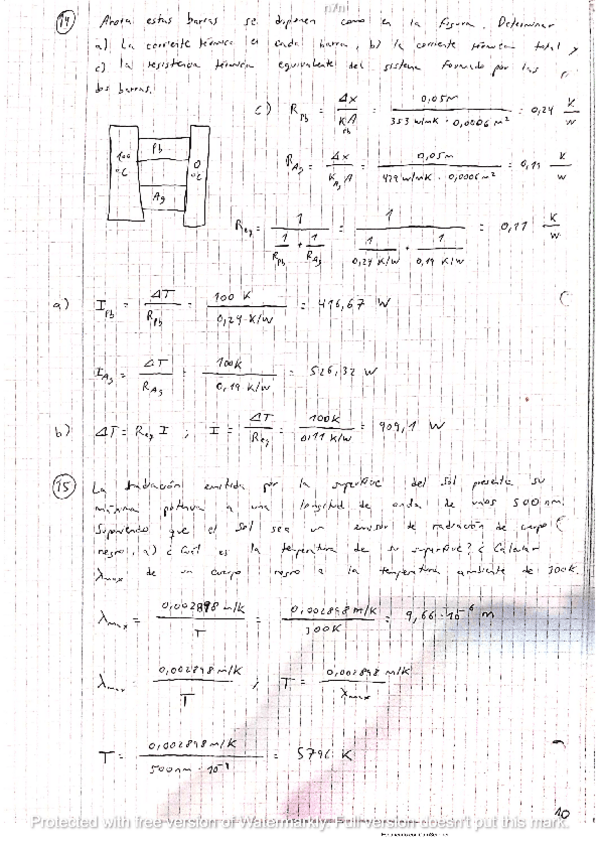 14 Ahora estas barras se disponen como en la figura. Determinar
a) La corriente térmica en cada barra, b) la corriente térmica total y
c) la resistencia térmica equivalente del sistema formado por las
dos barras.
c) R_Pb = Δx / K_Pb A = 0,05m / 353 w/mK · 0,0006 m² = 0,24 K/W
100 °C Pb 0 °C
Ag
R_Ag = Δx / K_Ag A = 0,05m / 429 w/mK · 0,0006 m² = 0,19 K/W
R_eq = 1 / (1/R_Pb + 1/R_Ag) = 1 / (1/0,24 K/W + 1/0,19 K/W) = 0,11 K/W
a) I_Pb = ΔT / R_Pb = 100 K / 0,24 K/W = 416,67 W
I_Ag = ΔT / R_Ag = 100K / 0,19 K/W = 526,32 W
b) ΔT = R_eq I ; I = ΔT / R_eq = 100K / 0,11 K/W = 909,1 W
15 La radiación emitida por la superficie del Sol presenta su
máxima potencia a una longitud de onda de unos 500 nm.
Suponiendo que el Sol sea un emisor de radiación de cuerpo
negro, a) ¿Cuál es la temperatura de su superficie? ¿ Calcular
λmax de un cuerpo negro a la temperatura ambiente de 300K.
λmax = 0,002898 m/K / T = 0,002898 m/K / 300K = 9,66·10⁻⁶ m
λmax = 0,002898 m/K / T ; T = 0,002898 m/K / λmax
T = 0,002898 m/K / 500nm · 10⁻⁹ = 5796 K
10
Protected with free version of Watermarkly. Full version doesn't put this mark.